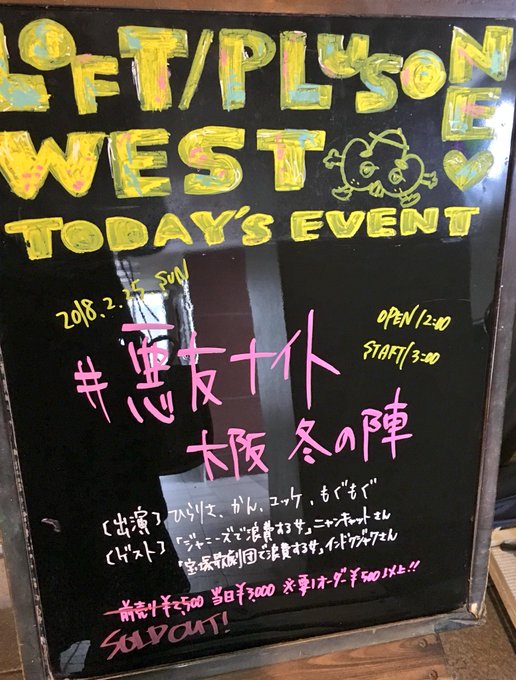 LOFT/PLUSONE
WEST
TODAY'S EVENT
2018.2.25 SUN
OPEN/12:00
START/13:00
#悪友ナイト
大阪 冬の陣
(出演) ひらりさ、かん、ユッケ、もぐもぐ
(ゲスト)「ジャニーズで浪費する女」ニャンキャットさん
「宝塚歌劇団で浪費する女」インドクジャクさん
前売り¥2,500 当日¥3,000 ※要1オーダー¥500以上!!
SOLD OUT!